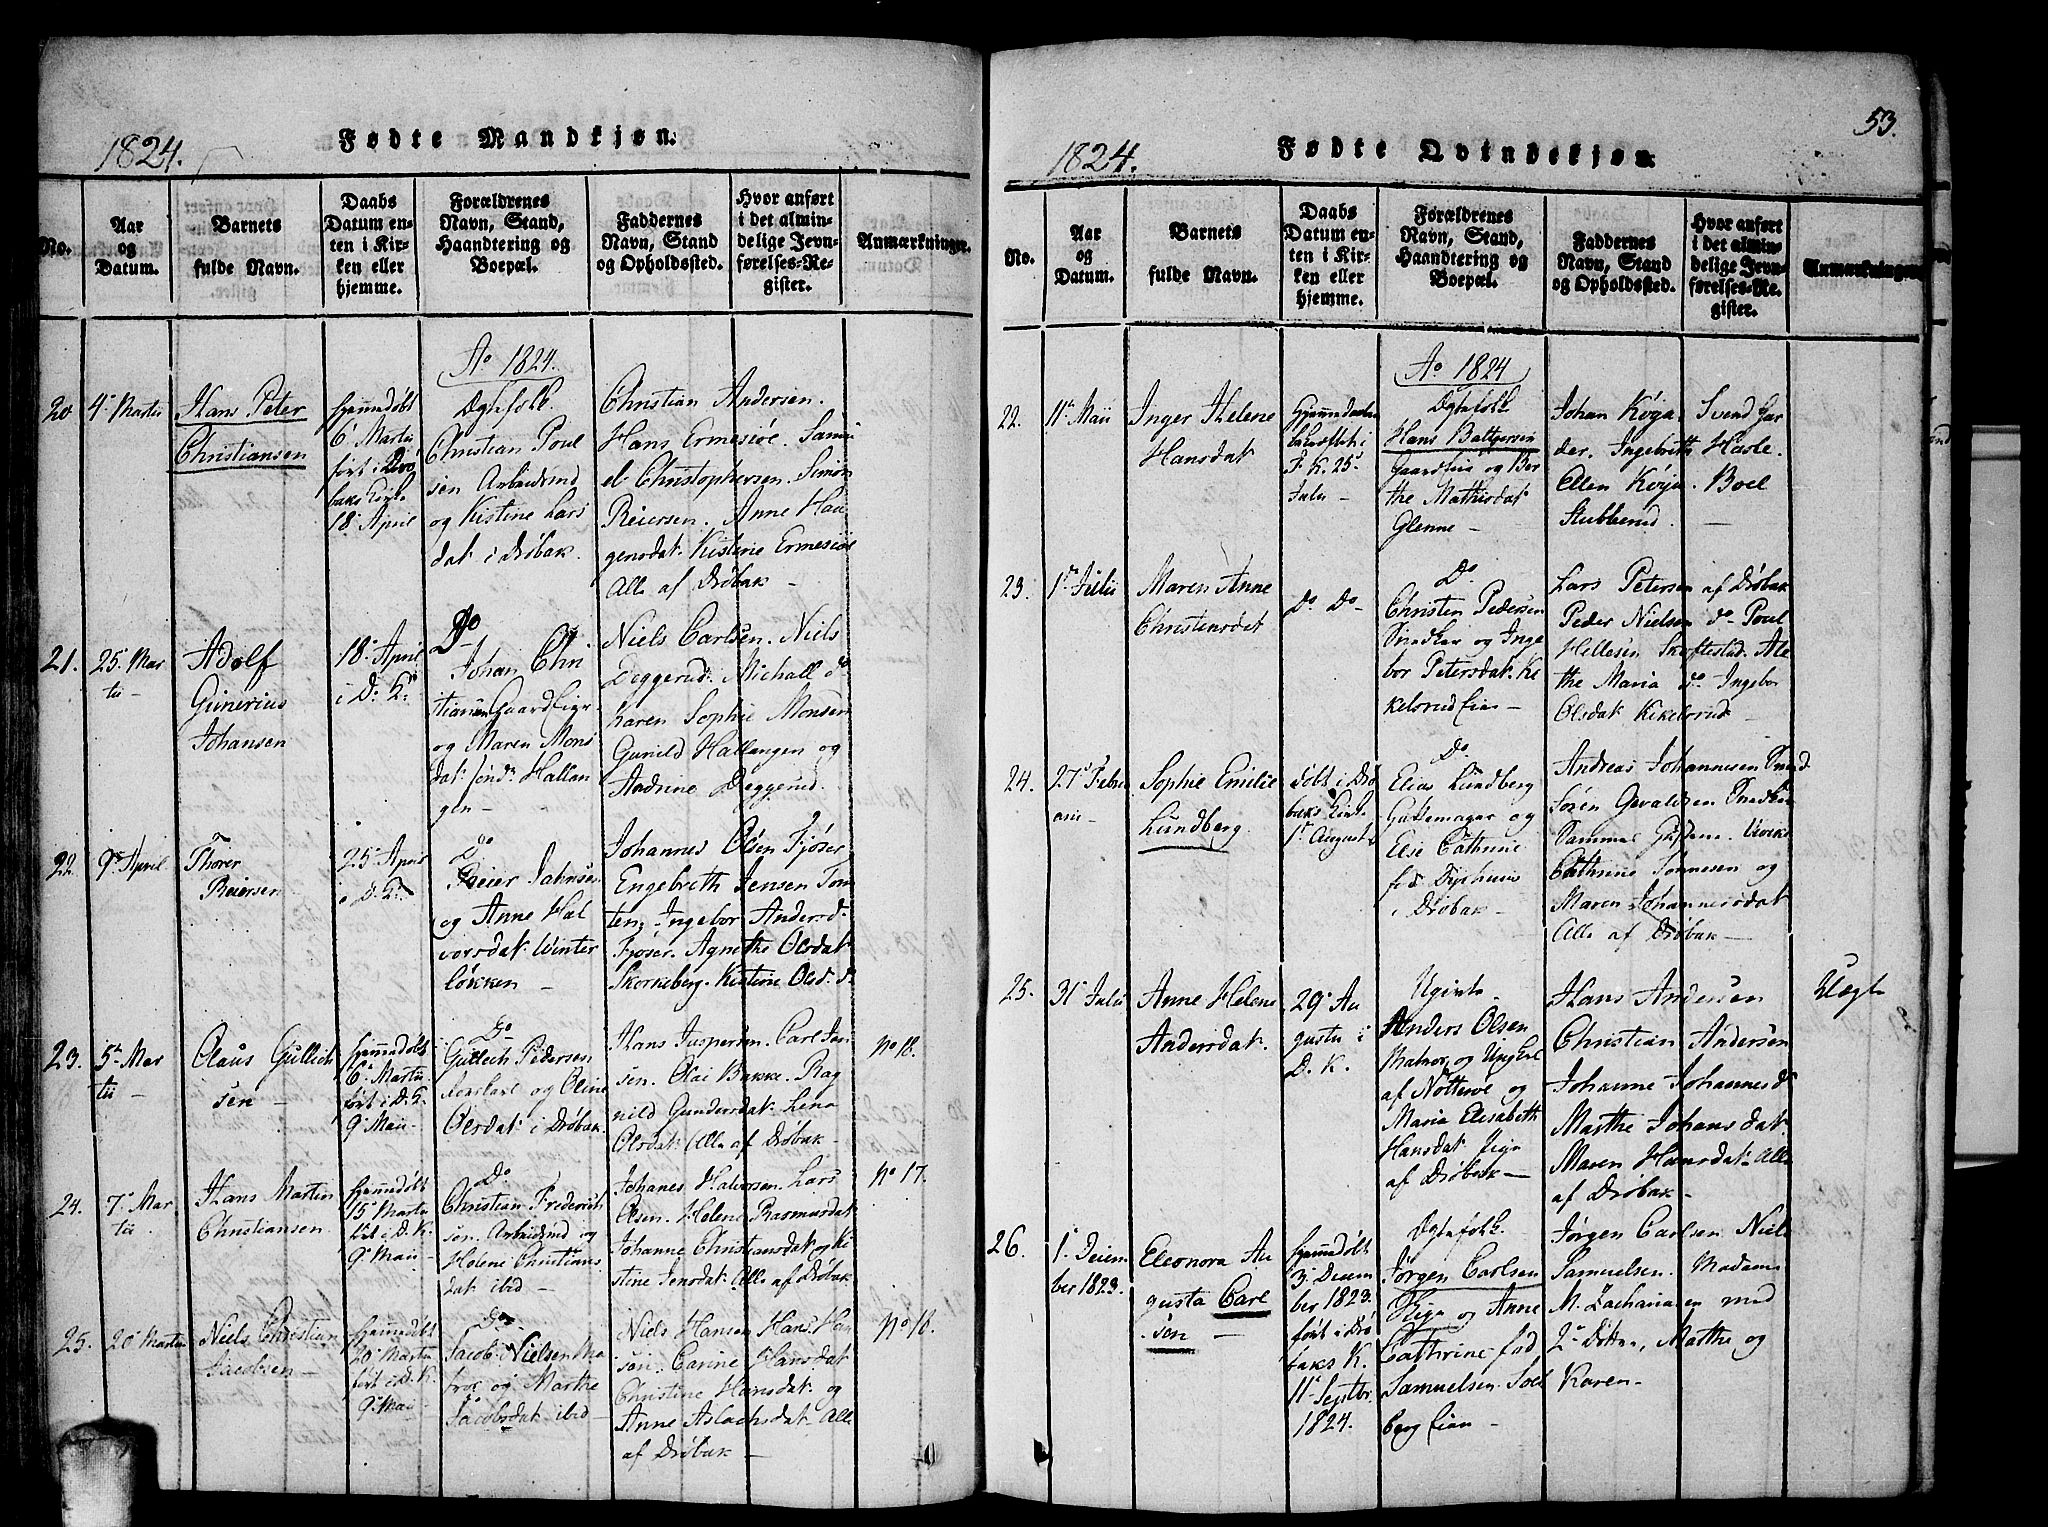 1824.
Fødte Mandkjøn.
No.
Aar
og
Datum.
Barnets
fulde Navn.
Daabs
Datum en-
ten i Kir-
ken eller
hjemme.
Forældrenes
Navn, Stand,
Haandtering og
Boepæl.
Faddernes
Navn, Stand
og Opholdssted.
Hvor anført
i det almin-
delige Jevn-
førelses-Re-
gister.
Anmærkninger.
Ao 1824.
20
4de Martii
Hans Peter
Christiansen
6te Martii
18de April
Christian Poul
sen
og Kistine Lars
dat i Drøbak.
Christian Andersen.
Hans Ermesiøe. Samu
el Christophersen. Simon
Reiersen. Anne Hau
gensdat. Kistine Ermesiøe
Alle af Drøbak -
21.
25 Mar
tii -
Adolf
Gunerius
Johansen
18de April
i D. K.
Do
Johan Chri
stiansen Gaard
og Maren Mons
dat Hallan
gen -
Niels Carlsen. Niels
Deggerud. Michall do
Karen Sophie Monsen
Gunild Hallangen og
Andrine Deggerud.
22
9de April
Thorer
Reiersen
25 April
i D. K.
Do
Reier Jahnsen
og Anne Hal
vorsdat Winter
løkken -
Johannes Olsen Fjøser
Engebreth Jensen Tom
ten. Ingebor Andersd.
Fjøser. Agnethe Olsdat
Skorkeberg. Kistine Olsd. do
23.
5te Mar
tii -
Olaus Gullich
sen -
6te Martii
ført i D. K.
9de Maii -
Do
Gullich Pedersen
og Oline
Olsdat i Drøbak.
Hans Jespersen. Carl Jan
sen. Olai Bakke. Rag
nild Gundersdat. Lena
Olsdat. Alle af Drøbak -
No 18.
24.
7de Mar
tii
Hans Martin
Christiansen
15de Martii
ført i D. K.
9de Maii -
Do
Christian Frederich
sen. og
Helene Christians
dat ibid -
Johanes Halvorsen. Lars
Olsen. Helene Rasmusdat
Johanne Christiansdat og Ki
stine Jensdat. Alle af Drøbak
No 17.
25.
20de Martii
Niels Christian
Jacobsen -
20de Martii
ført i D. K.
9de Maii -
Do
Jacob Nielsen Ma
tros og Marthe
Jacobsdat ibid -
Niels Hansen Hans Han
sen. Carine Hansdat
Christine Hansdat og
Anne Aslachsdat Alle
af Drøbak -
No 18.
53.
1824.
Fødte Qvindekjøn.
No.
Aar
og
Datum.
Barnets
fulde Navn.
Daabs
Datum en-
ten i Kir-
ken eller
hjemme.
Forældrenes
Navn, Stand,
Haandtering og
Boepæl.
Faddernes
Navn, Stand
og Opholdssted.
Hvor anført
i det almin-
delige Jevn-
førelses-Re-
gister.
Anmærkninger
Ao 1824
22.
11te Maii
Inger Helene
Hansdat
25de
Julii -
Ægtefolk
Hans
og Ber
the Mathisdat
Glenne -
Johan Køya. Svend Gar
der. Ingebrith Hasle.
Ellen Køya. Boel
Stubberud. -
23.
1ste Julii
Maren Anne
Christensdat
Do Do
Do
Christen Pedersen
Snedker og Inge
bor Petersdat. Ke
kelsrud Eier -
Lars Petersen af Drøbak
Peder Nielsen do Poul
Hellesen Skoftestad. Ale
the Maria do Ingebor
Olsdat Kikelsrud.
24.
27de Febru
arii -
Sophie Emilie
Lundberg.
Døbt i Drø
baks Kirke
1ste Augusti
Do
Elias Lundberg
og
Else Cathrine
fød
i Drøbak -
Andreas Johannesen
Søren
Cathrine Sønnesen og
Maren Johannesdat
Alle af Drøbak -
25.
31te Julii
Anne Helene
Andersdat.
29de Au
gustii i
D. K.
Ugivte
Anders Olsen
Matros og Ung
af og
Maria Elisabeth
Hansdat Pige
af Drøbak -
Hans Andersen
Christian Andersen
Johanne Johannesd
Marthe Johansdat
Maren Hansdat Alle
af Drøbak -
Uægte
26.
1ste Decem
ber 1823.
Eleonora Au
gusta Carl
sen -
3de Decem
ber 1823.
ført i Drø
baks K.
11te Septbr
1824.
Ægtefolk
Jørgen Carlsen
og Anne
Cathrine fød
Samuelsen. Sol
berg Eier -
Jørgen Carlsen Niels
Samuelsen. Madame
M. Zachariasen med
2de Døttre, Mathe og
Karen -